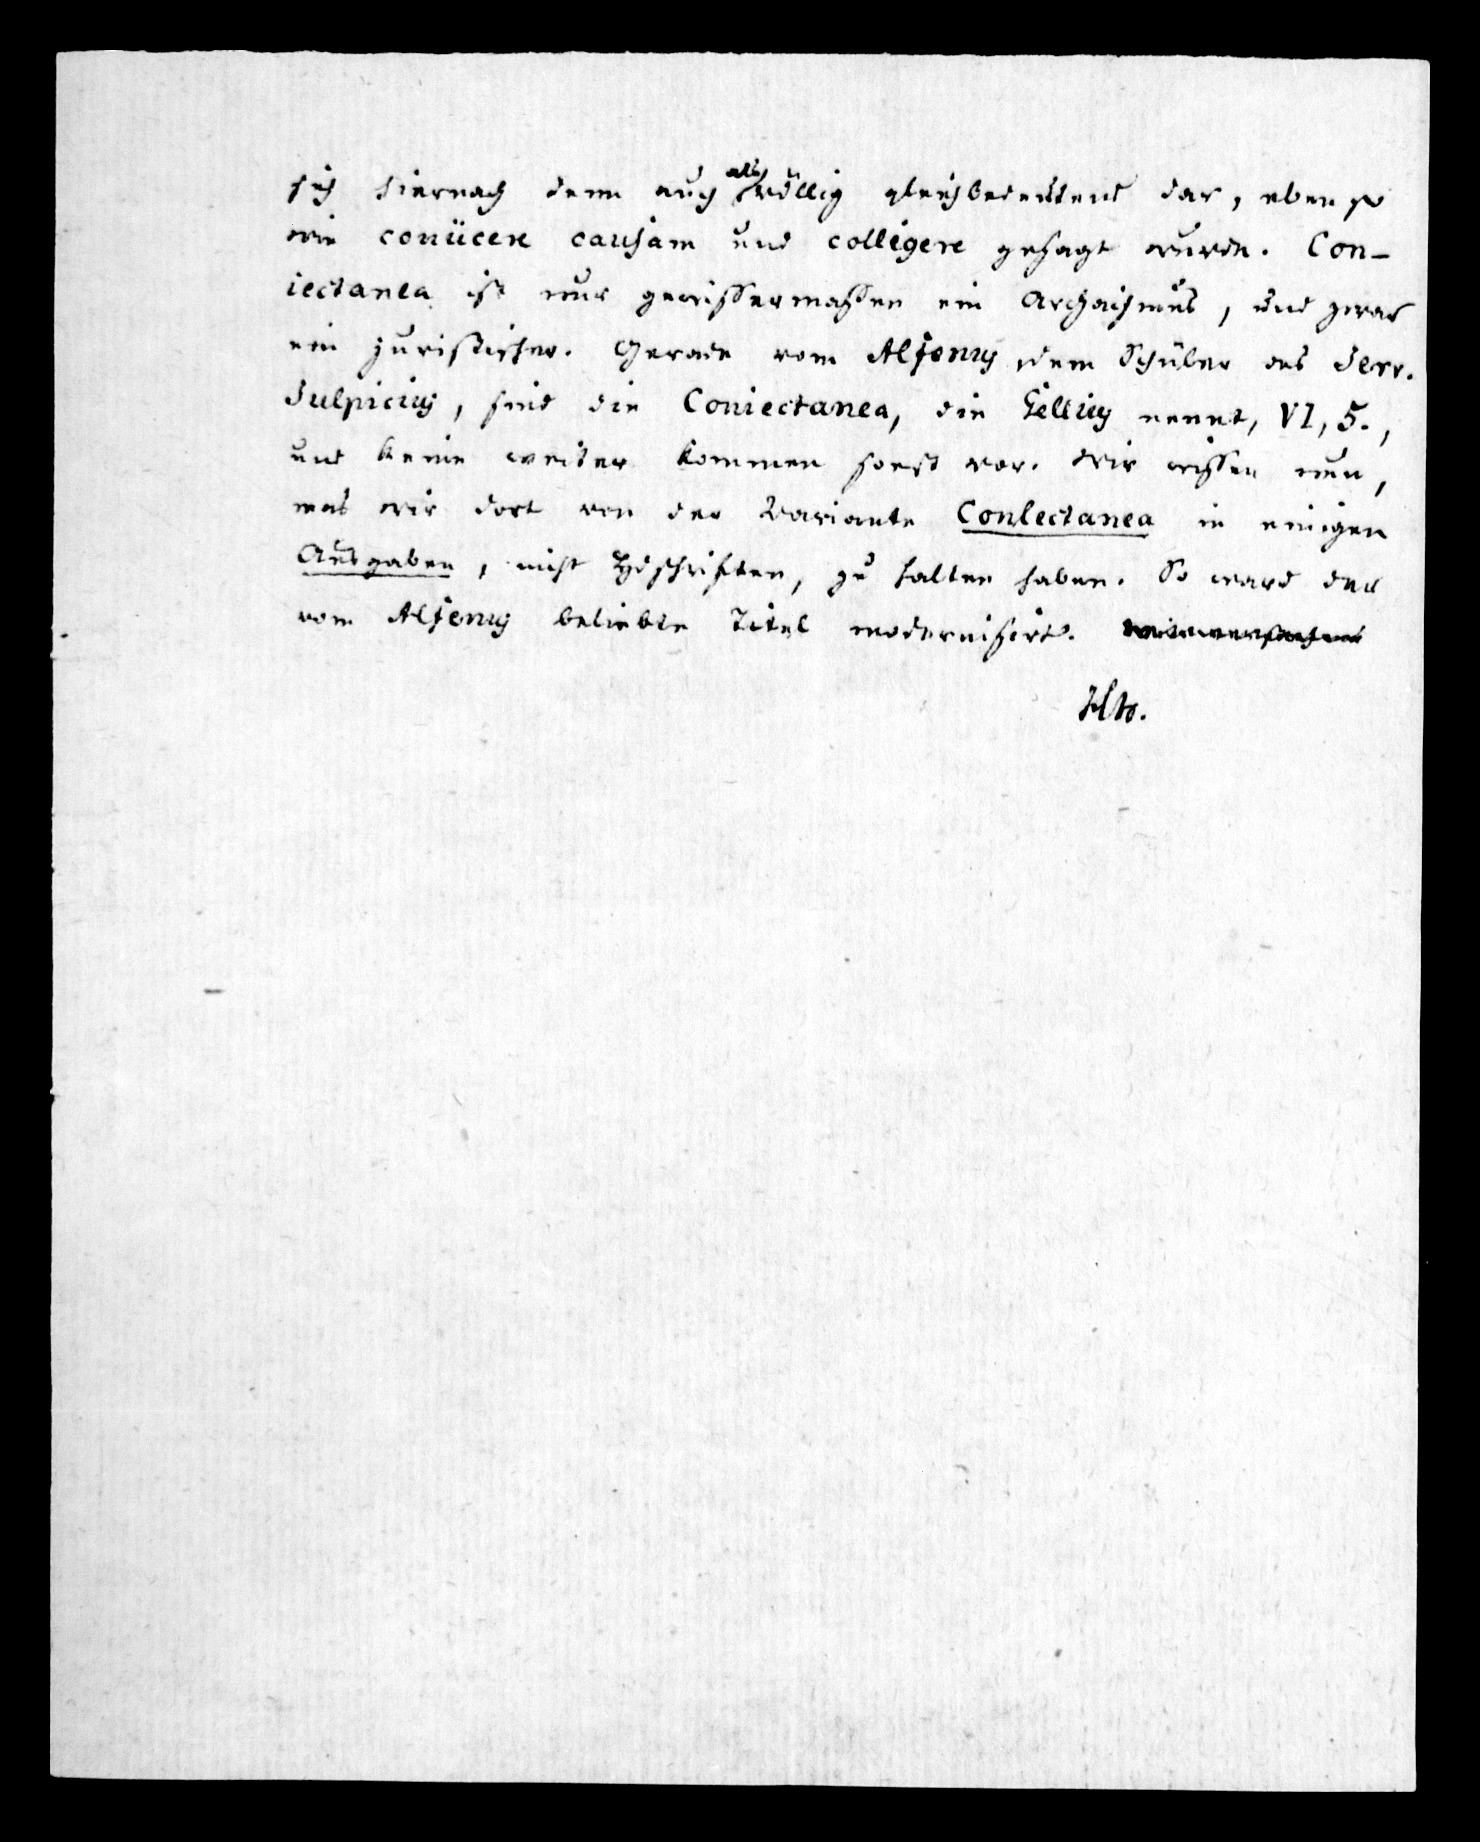 sich hiernach denn auch als völlig gleichbedeutend dar, eben so
wie coniicere causam und colligere gesagt wurde. Con-
iectanea ist nur gewissermaßen ein Archaismus, und zwar
ein juristischer. Gerade vom Alfenus, dem Schüler des Serv.
Sulpicius, sind die Coniectanea, die Gellius nennt, VI, 5.,
und keine weiter kommen sonst vor. Wir wissen nun,
was wir dort von der Variante Conlectanea in einigen
Ausgaben, nicht Hdschriften, zu halten haben. So ward der
vom Alfenus beliebte Titel modernisirt.